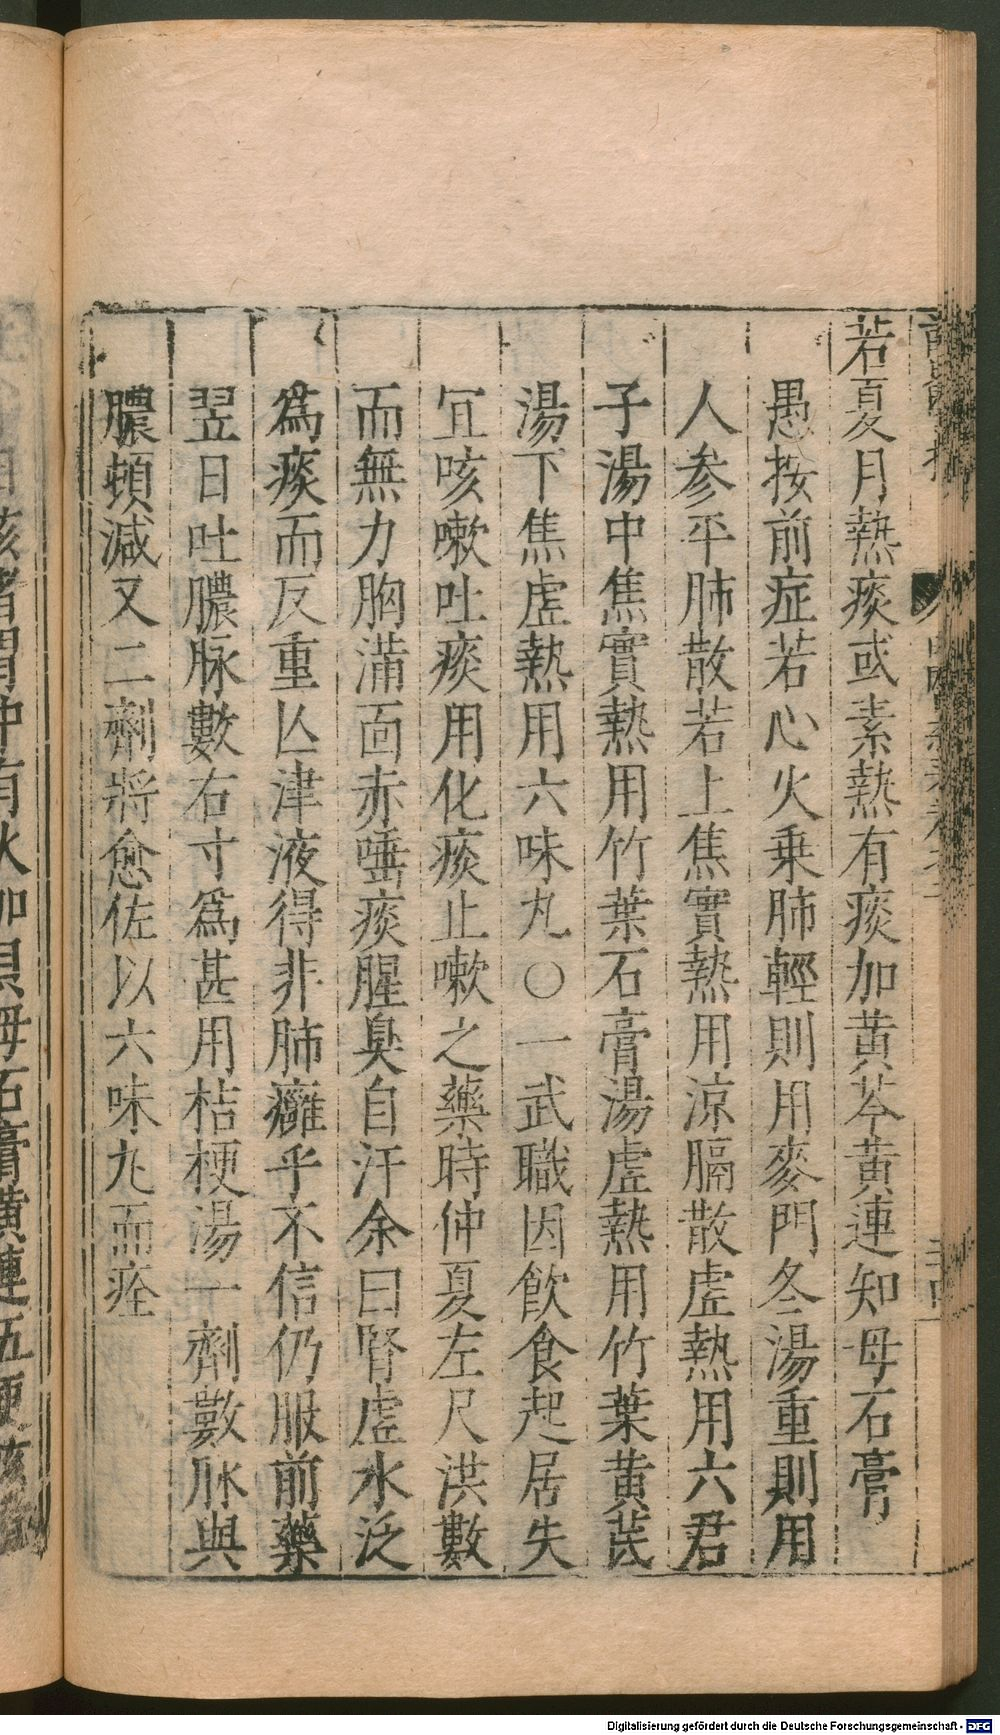 若夏月熱痰或素熱有痰加黄芩黄連知母石膏
愚按前症若心火乗肺輕則用麥門冬湯重則用
人参平肺散若上焦實熱用涼膈散虚熱用六君
子湯中焦實熱用竹葉石膏湯虚熱用竹葉黄茋
湯下焦虚熱用六味丸〇一武職因飲食起居失
冝咳嗽吐痰用化痰止嗽之藥時仲夏左尺洪數
而無力胸滿面赤唾痰腥臭自汗余曰腎虚水泛
爲痰而反重亾津液得非肺癰乎不信仍服前藥
翌日吐膿脉數右寸爲甚用桔梗湯一劑數脉與
膿頓減又二劑將愈佐以六味丸而痊
Digitalisierung gefördert durch die Deutsche Forschungsgemeinschaft - DFG